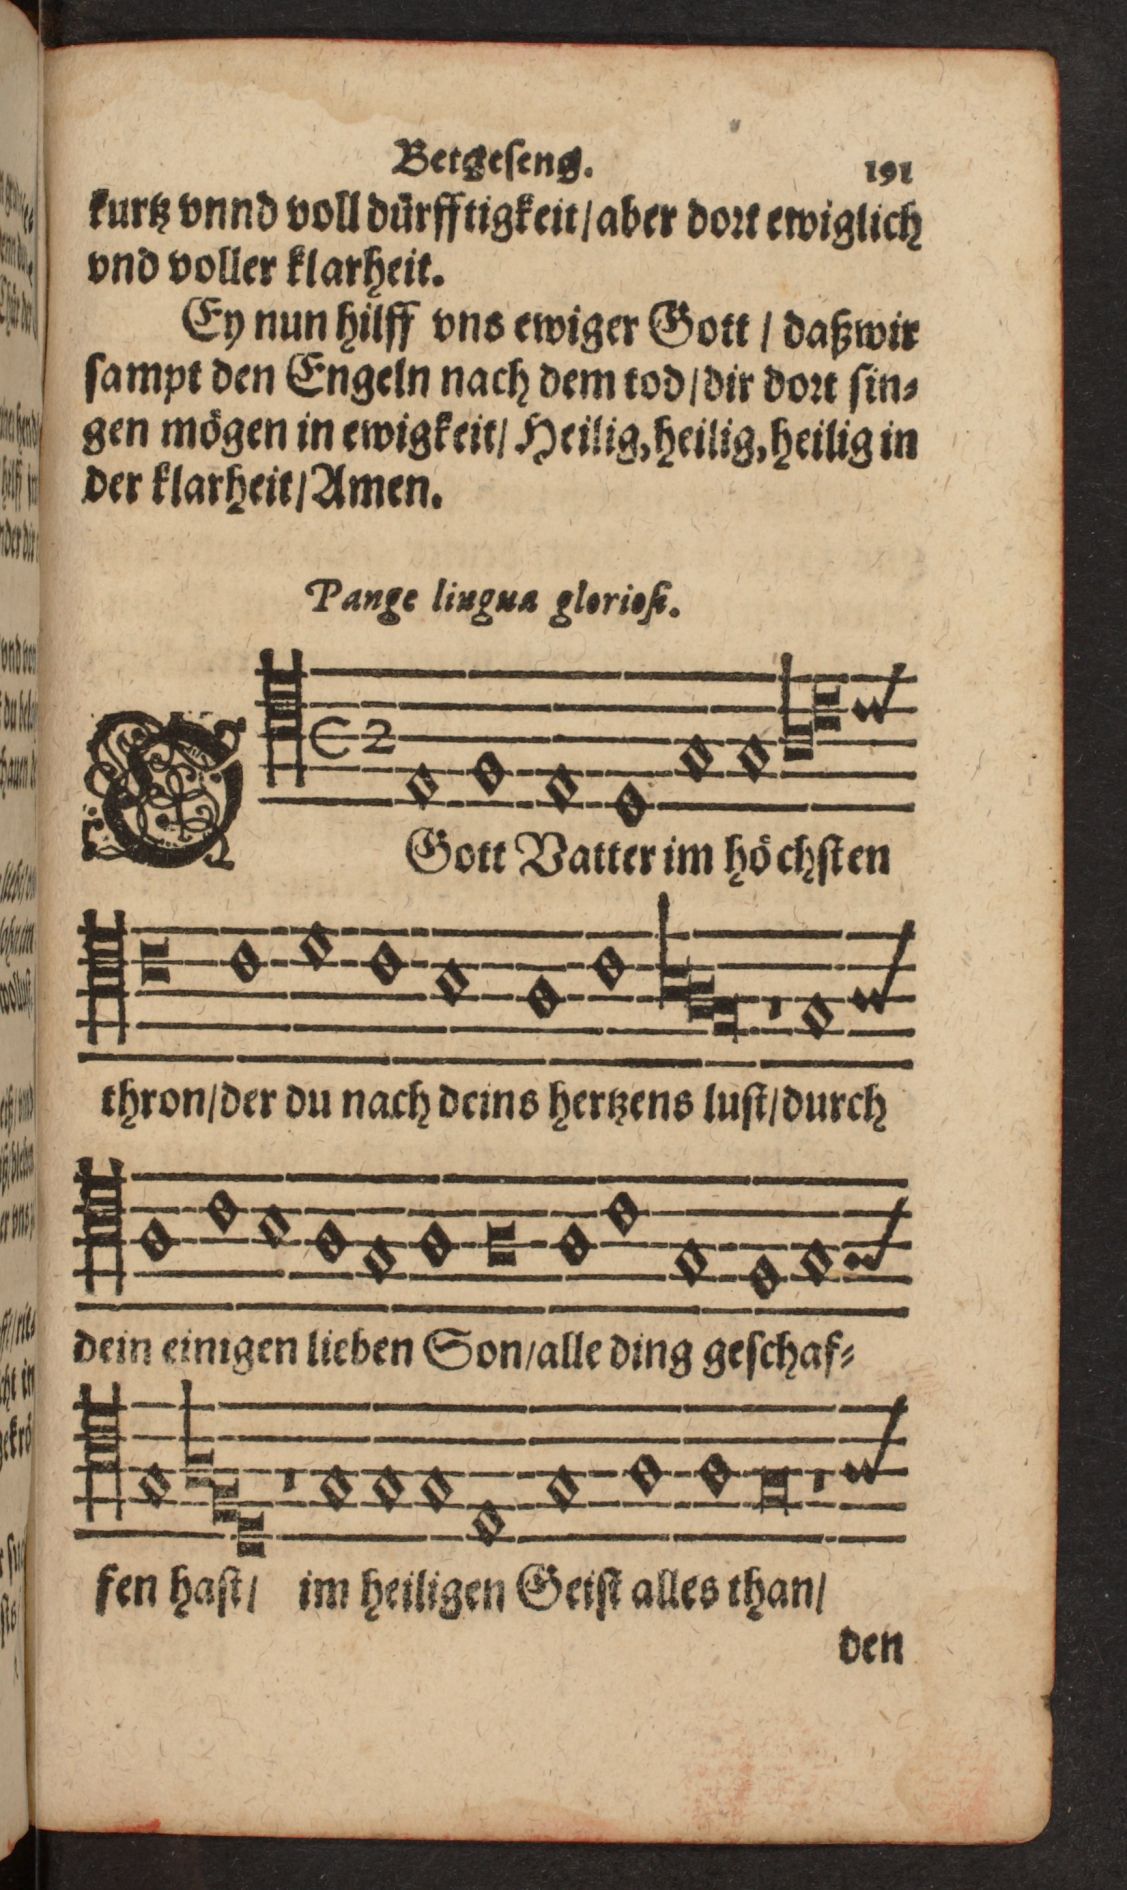 Betgeseng. 191
kurtz vnnd voll dürfftigkeit/aber dort ewiglich
vnd voller klarheit.
Ey nun hilff vns ewiger Gott / daß wir
sampt den Engeln nach dem tod/dir dort sin-
gen mögen in ewigkeit/ Heilig, heilig, heilig in
der klarheit/Amen.
Pange lingua gloriosi.
C2
O Gott Vatter im höchsten
thron/der du nach deins hertzens lust/durch
dein einigen lieben Son/alle ding geschaf-
fen hast/ im heiligen Geist alles than/
den